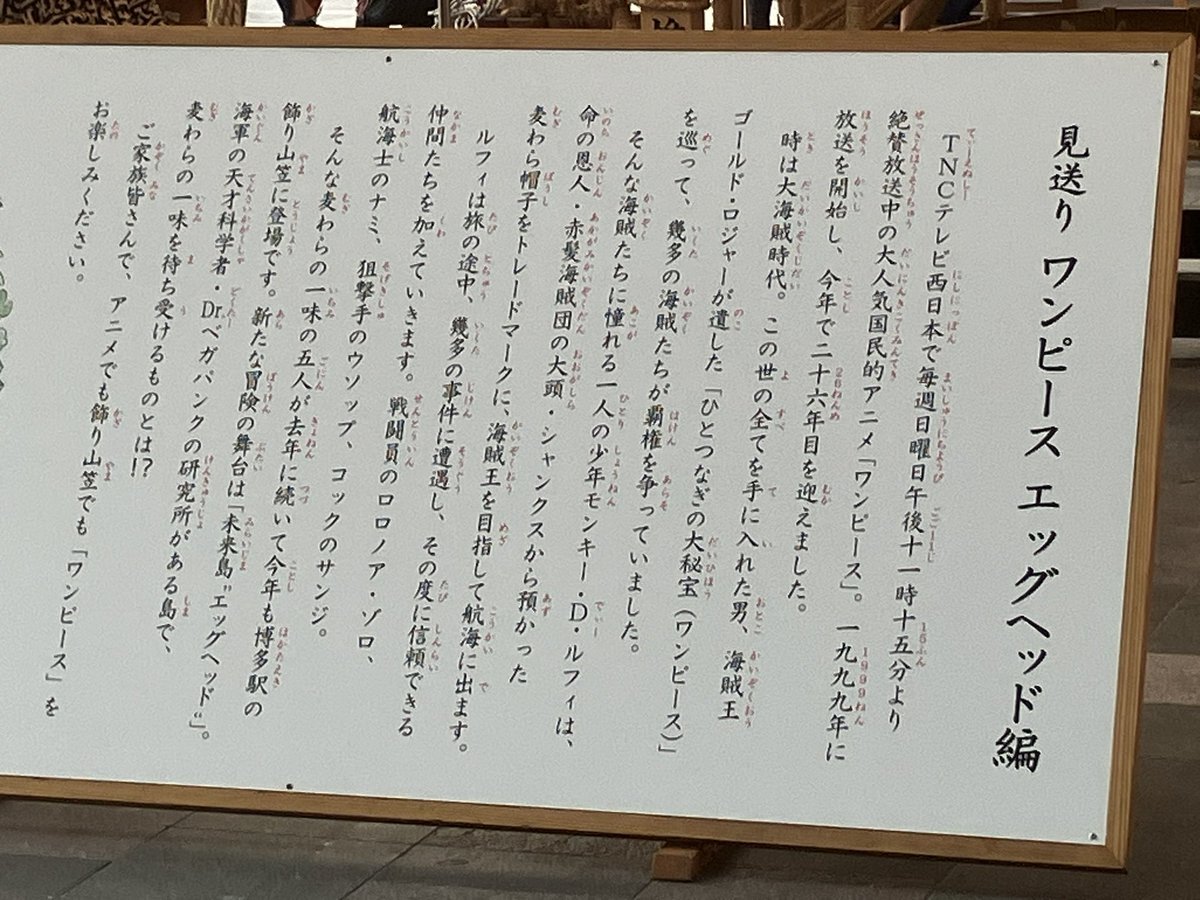 見送り ワンピース エッグヘッド編
TNCテレビ西日本で毎週日曜日午後十一時十五分より
絶賛放送中の大人気国民的アニメ「ワンピース」。一九九九年に
放送を開始し、今年で二十六年目を迎えました。
時は大海賊時代。この世の全てを手に入れた男、海賊王
ゴールド・ロジャーが遺した「ひとつなぎの大秘宝（ワンピース）」
を巡って、幾多の海賊たちが覇権を争っていました。
そんな海賊たちに憧れる一人の少年モンキー・D・ルフィは、
命の恩人・赤髪海賊団の大頭・シャンクスから預かった
麦わら帽子をトレードマークに、海賊王を目指して航海に出ます。
ルフィは旅の途中、幾多の事件に遭遇し、その度に信頼できる
仲間たちを加えていきます。戦闘員のロロノア・ゾロ、
航海士のナミ、狙撃手のウソップ、コックのサンジ。
そんな麦わらの一味の五人が去年に続いて今年も博多駅の
飾り山笠に登場です。新たな冒険の舞台は「未来島〝エッグヘッド〟」。
海軍の天才科学者・Dr.ベガパンクの研究所がある島で、
麦わらの一味を待ち受けるものとは!?
ご家族皆さんで、アニメでも飾り山笠でも「ワンピース」を
お楽しみください。